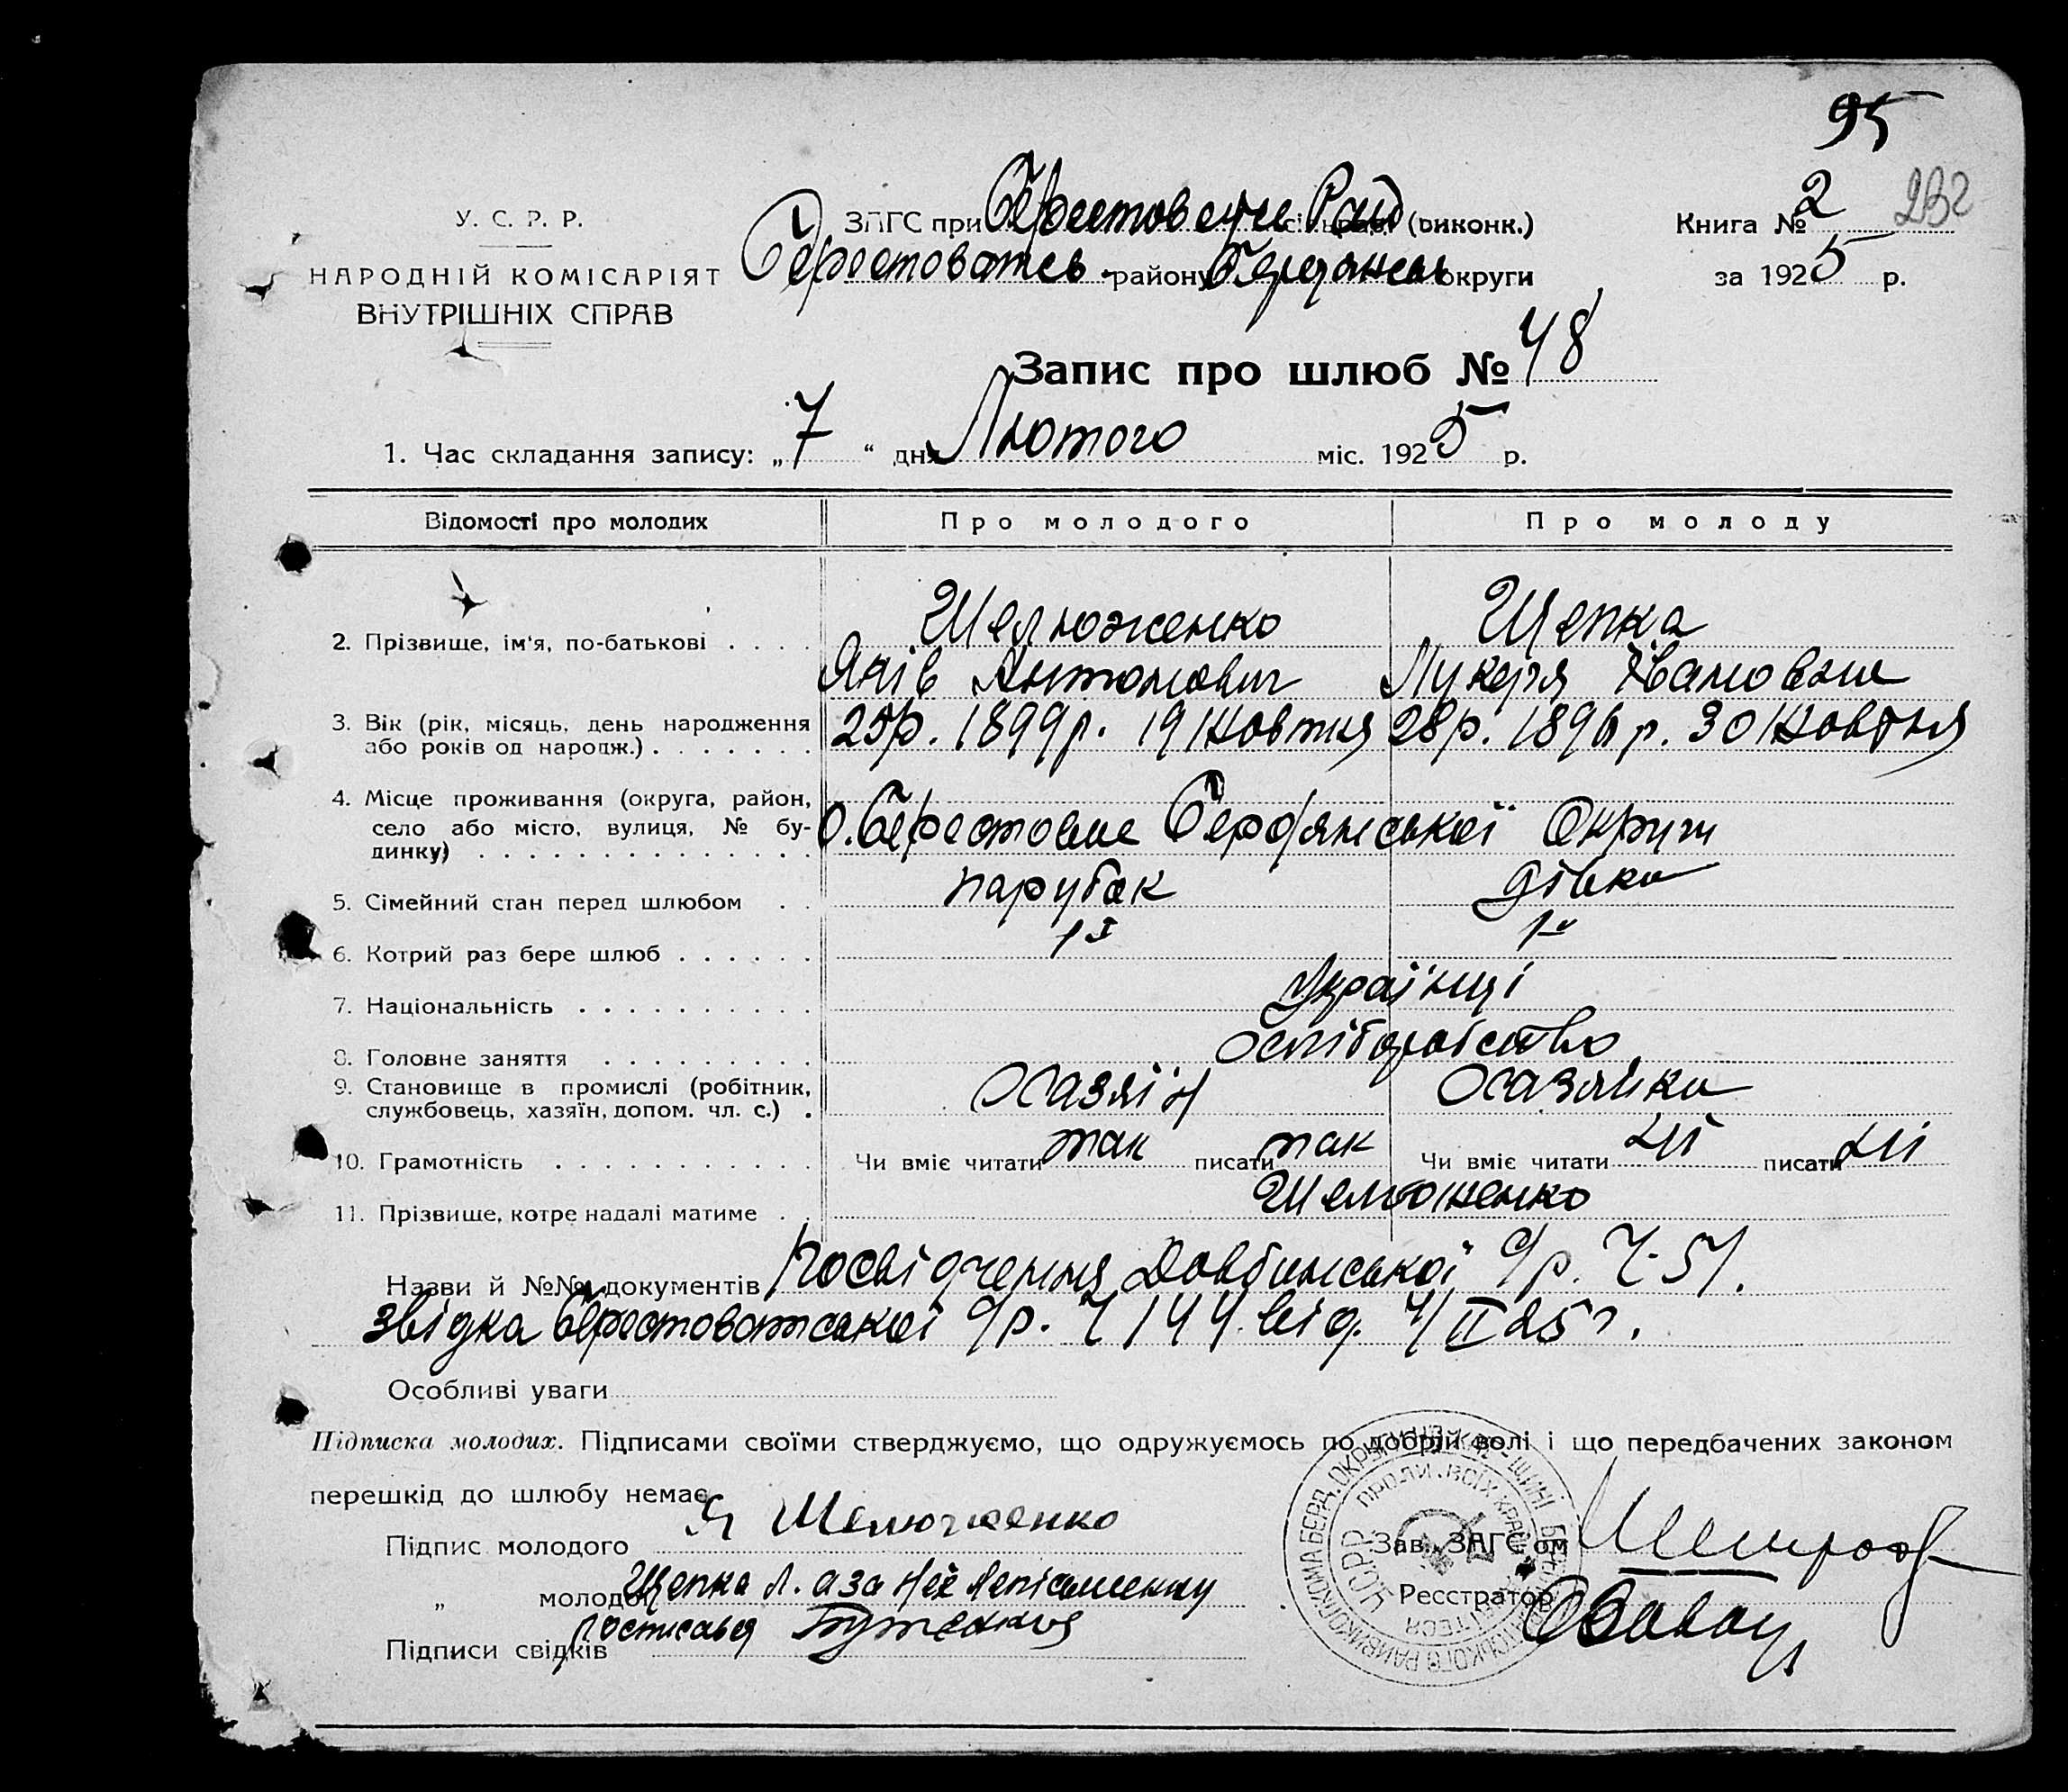 95
У. С. Р. Р.
НАРОДНІЙ КОМІСАРІЯТ
ВНУТРІШНІХ СПРАВ
ЗАГС при Берестовецке Рай сільраді (виконк.)
Берестоватсь. району Бердянсь округи
Книга № 2 232
за 1925 р.
Запис про шлюб № 48
1. Час складання запису: „7“ дня Лютого міс. 1925 р.
Відомості про молодих Про молодого Про молоду
2. Прізвище, ім'я, по-батькові . . . . Шелюженко Щепка
Яків Антонович Лукерія Івановна
3. Вік (рік, місяць, день народження
або років од народж.) . . . . . . . 25р. 1899р. 19 Жовтня 28р. 1896р. 30 Жовтня
4. Місце проживання (округа, район,
село або місто, вулиця, № бу-
динку) . . . . . . . . . . . . . . Берестовое Бердянської Округи
5. Сімейний стан перед шлюбом . . парубак дівка
6. Котрий раз бере шлюб . . . . . . 1й 1й
7. Національність . . . . . . . . . . Українці
8. Головне заняття . . . . . . . . .
9. Становище в промислі (робітник,
службовець, хазяїн, допом. чл. с.) . Хазяїн Хазяйка
10. Грамотність . . . . . . . . . . . Чи вміє читати так писати так Чи вміє читати ні писати ні
11. Прізвище, котре надалі матиме . . Шелюженко
Назви й №№ документів Посвідчення Довбинської с/р. Ч-51.
звідка Берестоватської с/р. Ч 144 від. 4/II 25 г.
Особливі уваги
Підписка молодих. Підписами своїми стверджуємо, що одружуємось по добрій волі і що передбачених законом
перешкід до шлюбу немає
Підпис молодого Я Шелюженко
„ молодої Щепка Л. а за неї
Підписи свідків
Зав. ЗАГС'ом
Реєстратор
УСРР